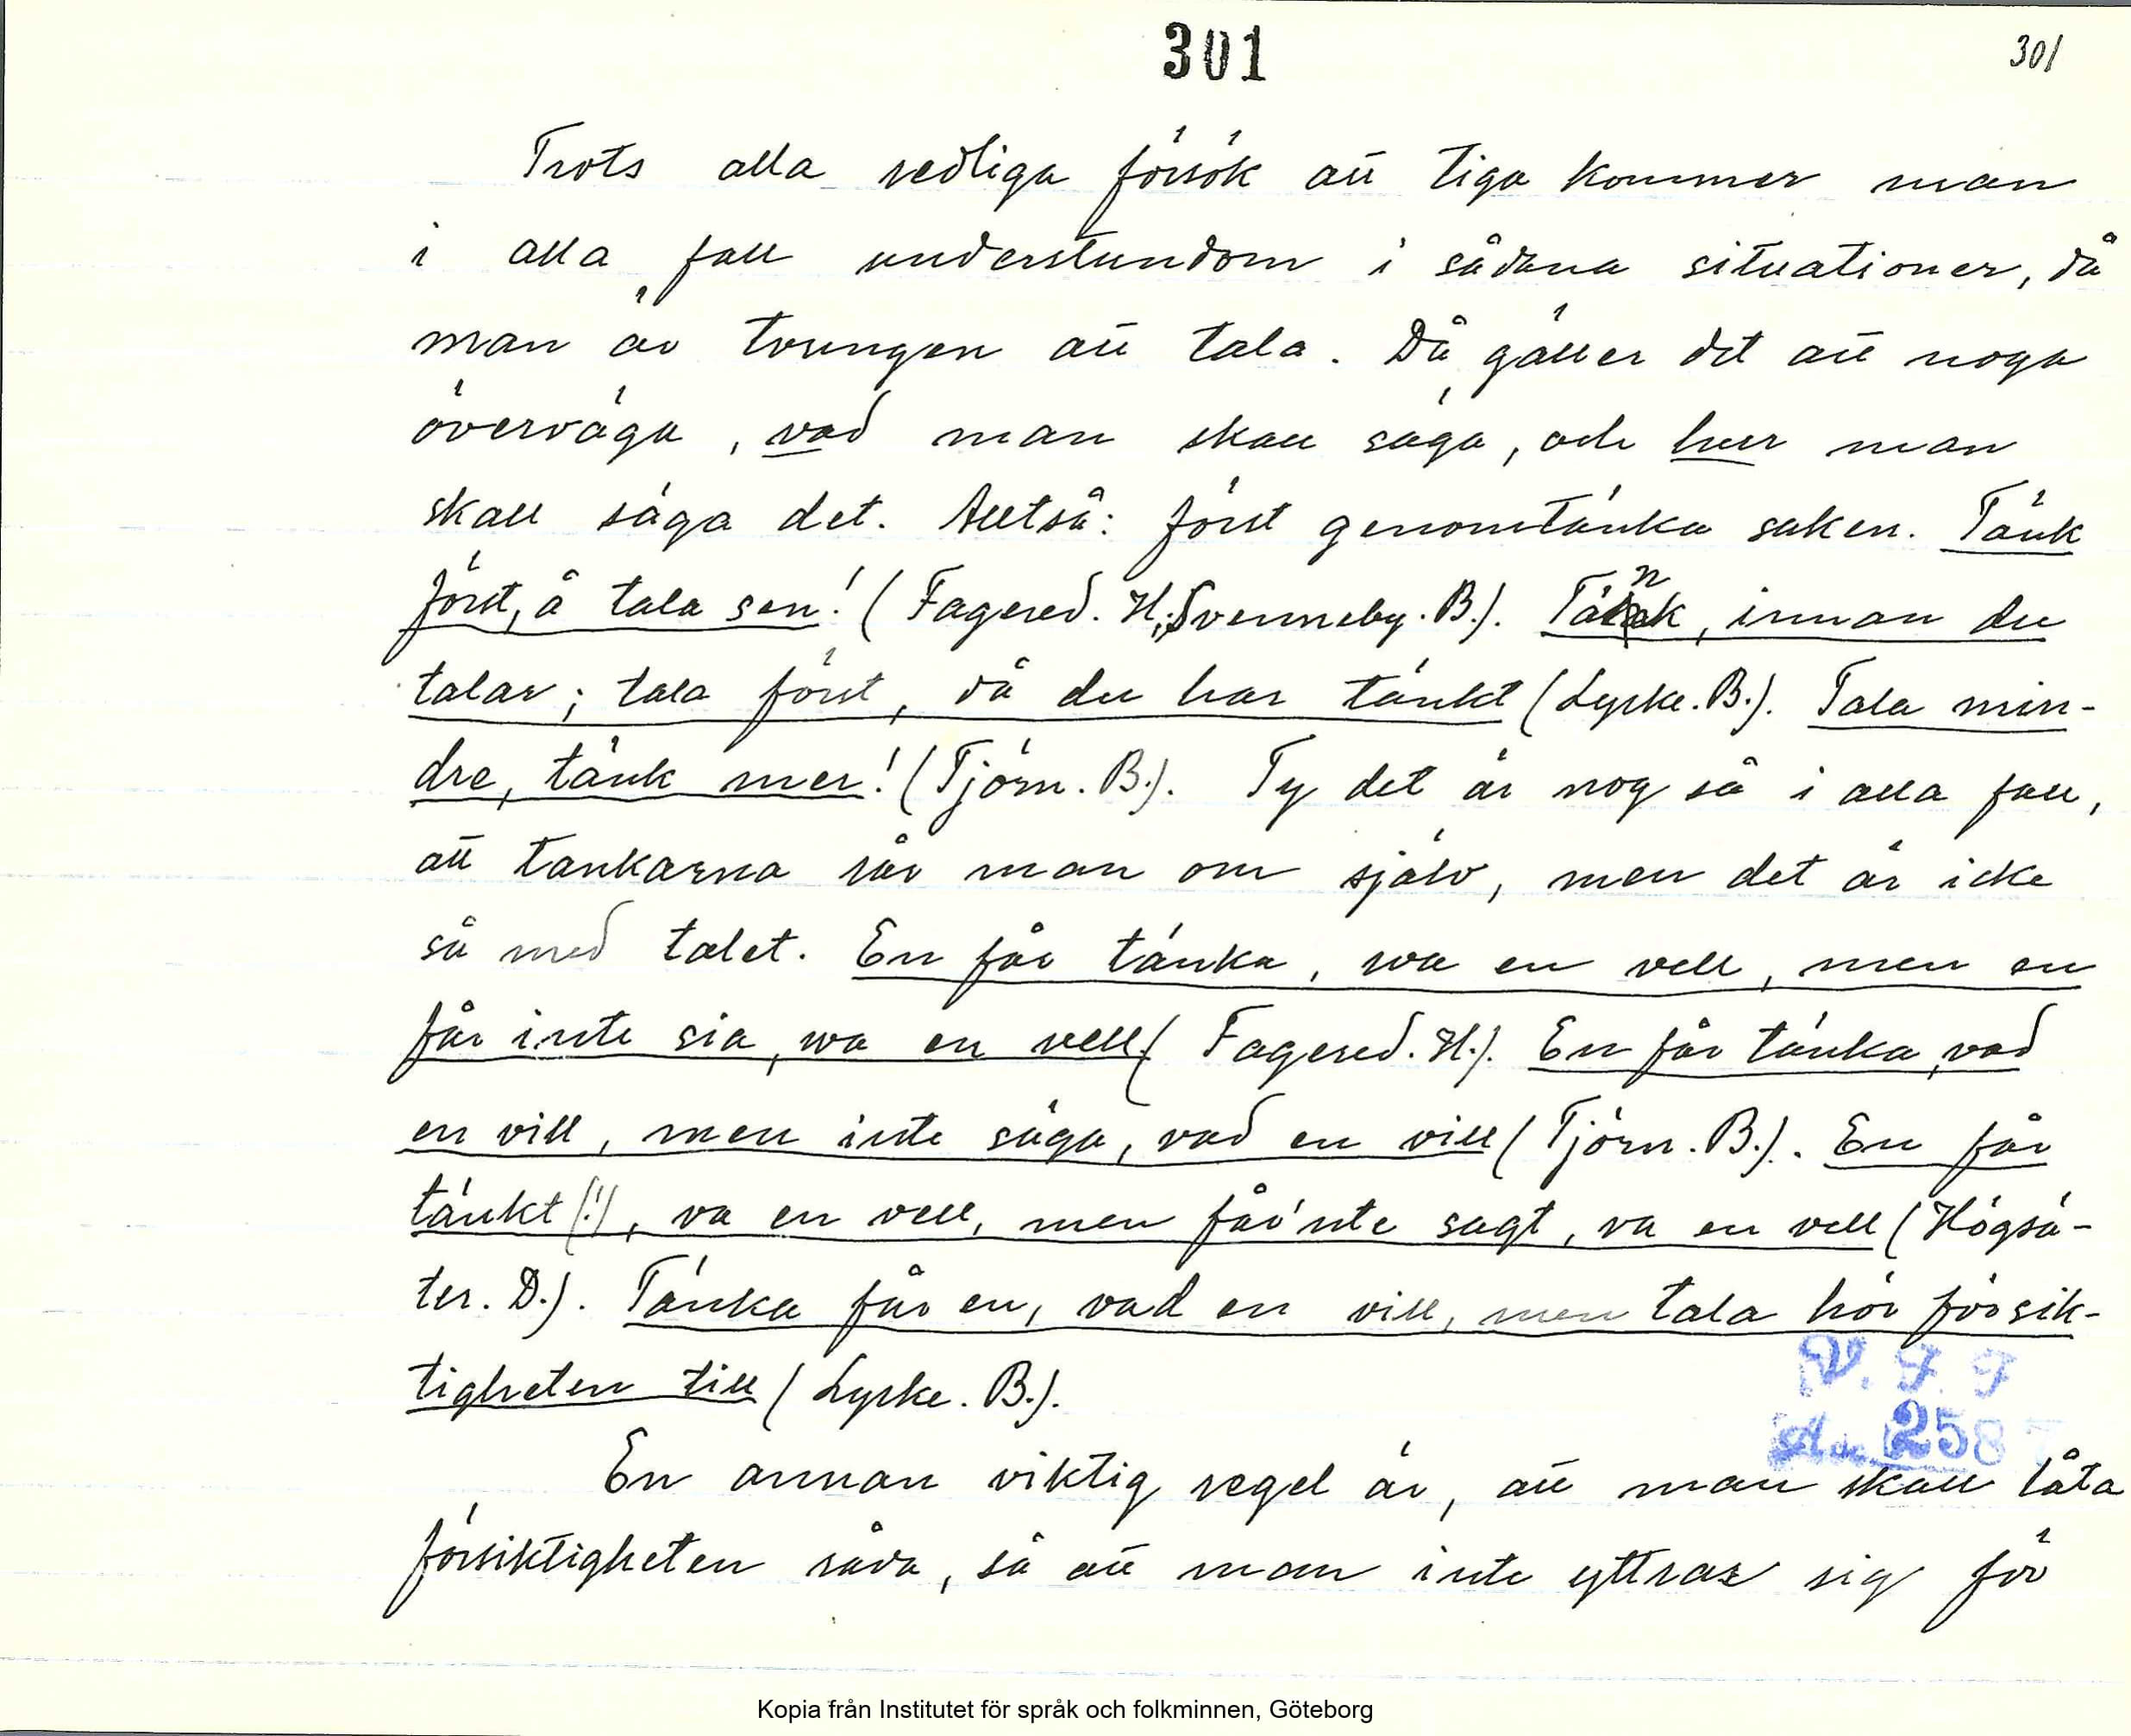 301
301
Trots alla redliga försök att tiga kommer man
i alla fall understundom i sådana situationer, då
man är tvungen att tala. Då gäller det att noga
överväga, vad man skall säga, och hur man
skall säga det. Alltså: först genomtänka saken. Tänk
först, å tala sen! (Fagered. H., Svenneby. B.). Tänk, innan du
talar; tala först, då du har tänkt (Lyske. B.). Tala min-
dre, tänk mer! (Tjörn. B.). Ty det är nog så i alla fall,
att tankarna rår man om själv, men det är icke
så med talet. En får tänka, va en vell, men en
får inte sia, va en vell (Fagered. H.). En får tänka, vad
en vill, men inte säga, vad en vill (Tjörn. B.). En får
tänkt (!), va en vell, men får'nte sagt, va en vell (Högsä-
ter. D.). Tänka får en, vad en vill, men tala hör försik-
tigheten till (Lyske. B.).
V. F. F
Acc 2587
En annan viktig regel är, att man skall låta
försiktigheten råda, så att man inte yttrar sig för
Kopia från Institutet för språk och folkminnen, Göteborg